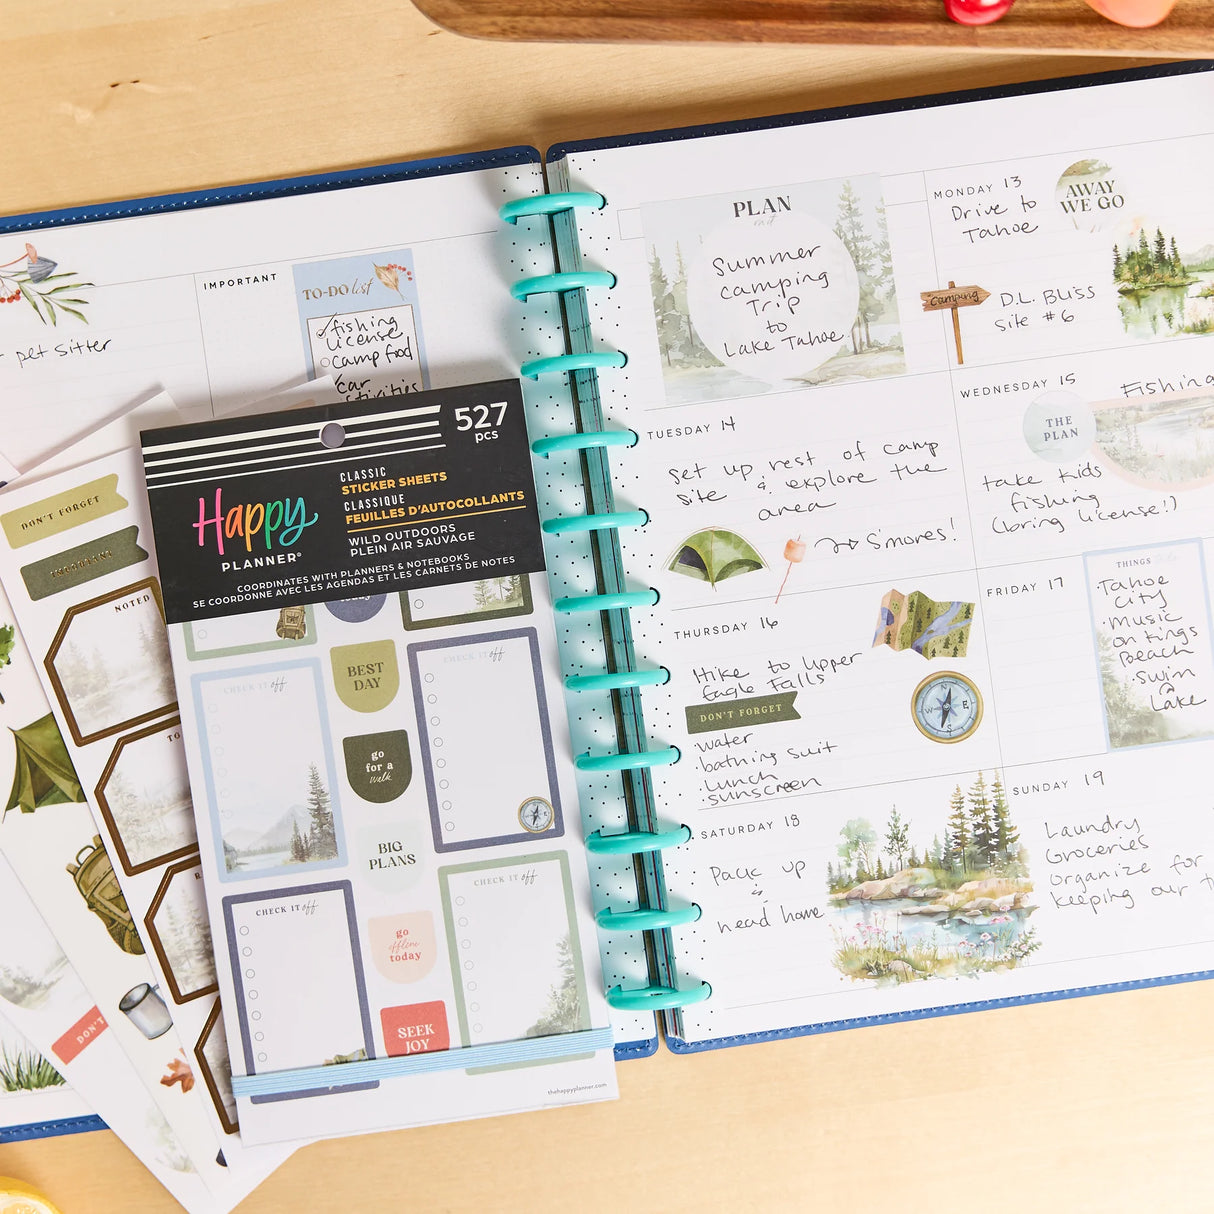 pet sitter
IMPORTANT
TO-DO list
fishing
license
camp food
car
DON'T FORGET
IMPORTANT
NOTED
DON'T
527
pcs
CLASSIC
STICKER SHEETS
CLASSIQUE
FEUILLES D'AUTOCOLLANTS
Happy
PLANNER®
WILD OUTDOORS
PLEIN AIR SAUVAGE
COORDINATES WITH PLANNERS & NOTEBOOKS
SE COORDONNE AVEC LES AGENDAS ET LES CARNETS DE NOTES
today
CHECK IT off
BEST
DAY
CHECK IT off
go
for a
walk
BIG
PLANS
CHECK IT off
go
offline
today
CHECK IT off
SEEK
JOY
thehappyplanner.com
PLAN
on it
Summer
camping
Trip
to
Lake Tahoe
MONDAY 13
Drive to
Tahoe
AWAY
WE GO
camping
D.L. Bliss
site #6
TUESDAY 14
set up rest of camp
site & explore the
area
S'mores!
WEDNESDAY 15
Fishing
THE
PLAN
take kids
fishing
(bring license!)
THURSDAY 16
Hike to Upper
Eagle Falls
DON'T FORGET
·water
·bathing suit
·Lunch
·sunscreen
W
E
S
FRIDAY 17
THINGS
·Tahoe
City
·Music
on Kings
Beach
·swim
@
Lake
SATURDAY 18
Pack up
&
head home
SUNDAY 19
Laundry
Groceries
organize for
keeping our